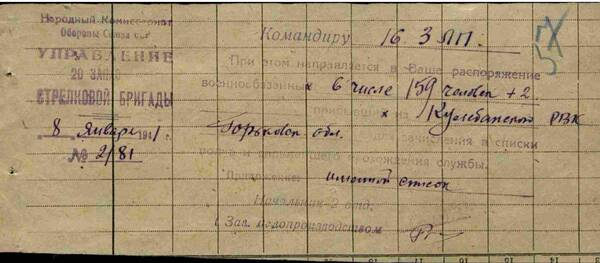 Народный Комиссариат
Обороны Союза ССР
УПРАВЛЕНИЕ
20 ЗАПАС
СТРЕЛКОВОЙ БРИГАДЫ
8 января 194
№ 2/81
Командиру 16. ЗЛП.
При этом направляется в Ваше распоряжение
военнообязанных в числе 159 человек + 2
прибывших из Кулебакского РВК
Горьковск обл. для зачисления в списки
и дальнейшего прохождения службы.
Приложение: именной список
Начальник 2 отд.
Зав. делопроизводством